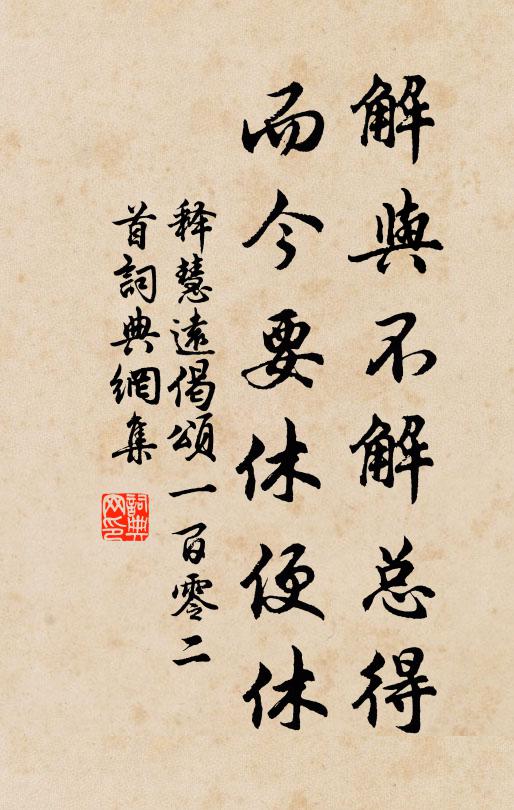 解與不解总得
而今要休便休
释慧遠偈頌一百零二
首詞典網集
詞典
网印